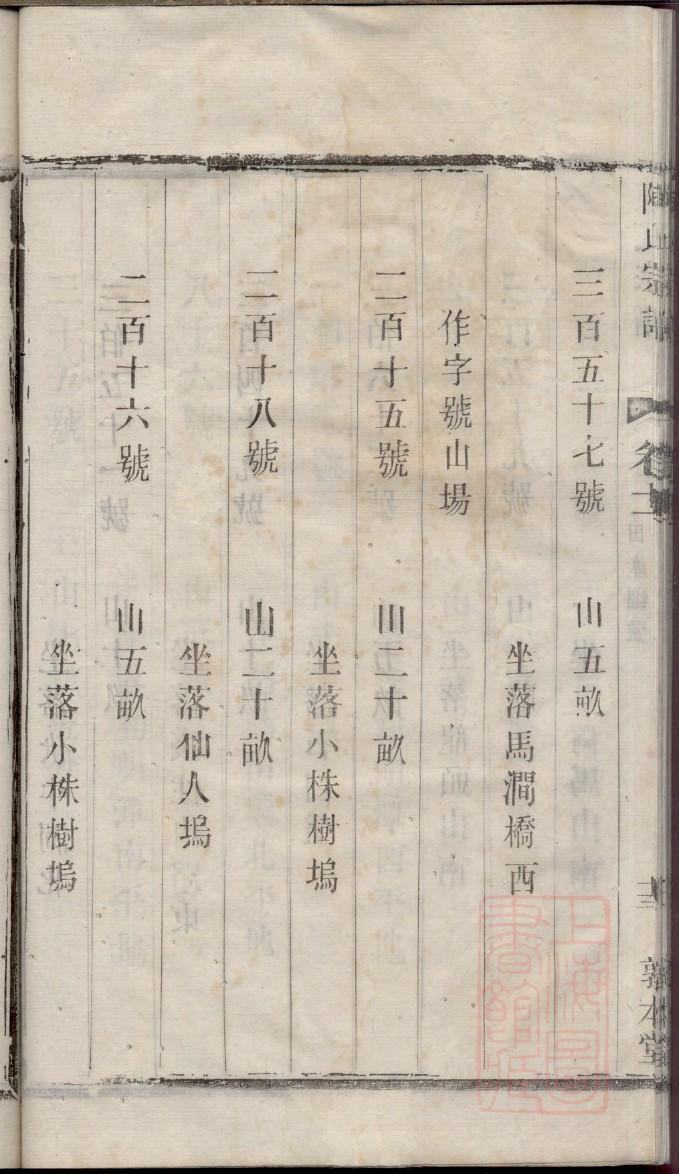 三百五十七號 山五畝
坐落馬澗橋西
作字號山場
二百十五號 山二十畝
坐落小株樹塢
二百十八號 山二十畝
坐落仙人塢
二百十六號 山五畝
坐落小株樹塢
氏宗譜 卷 敦本堂
上海圖書館藏